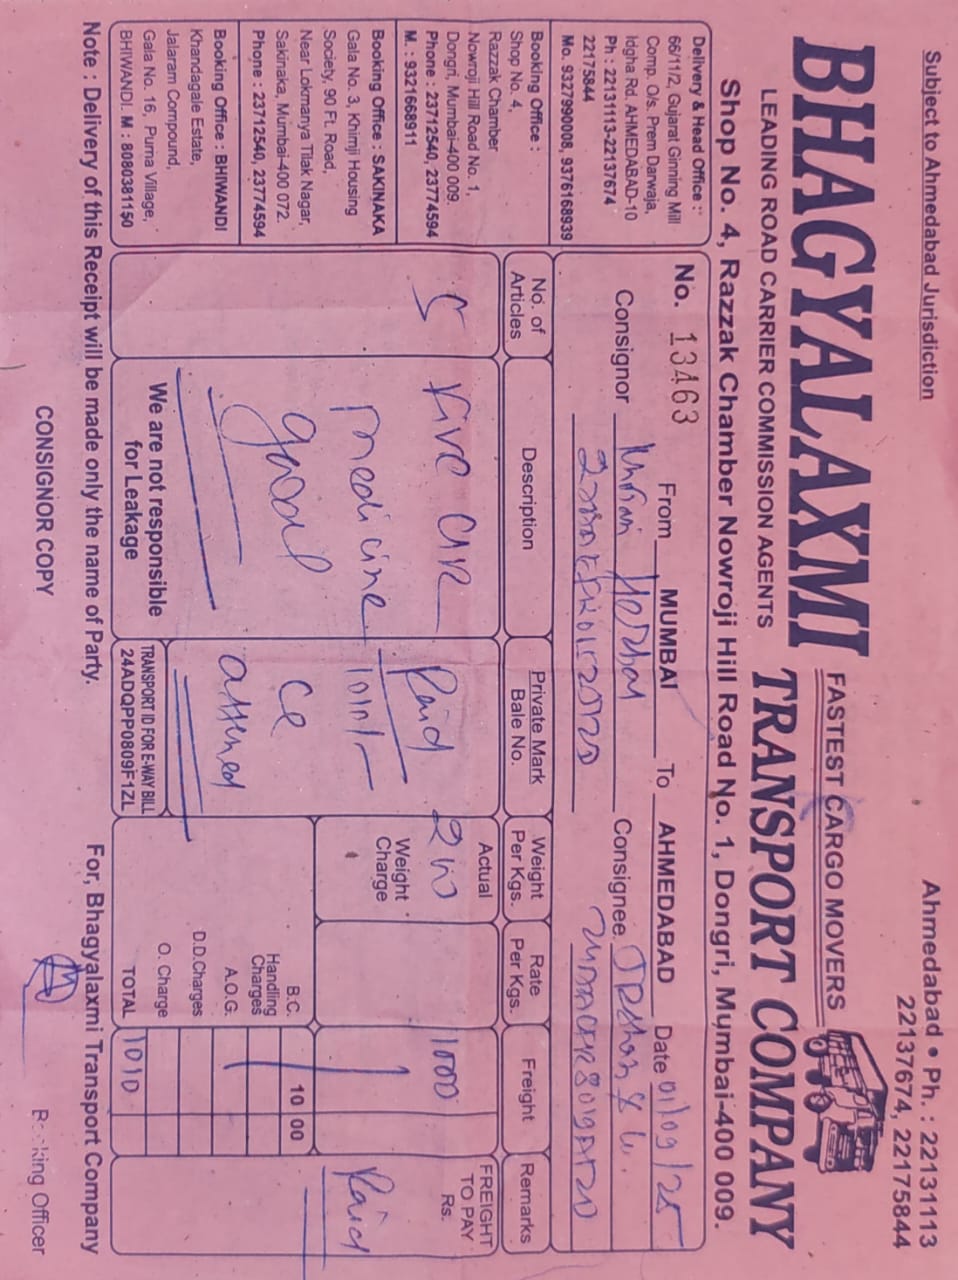 Subject to Ahmedabad Jurisdiction
Ahmedabad • Ph. : 22131113
22137674, 22175844
BHAGYALAXMI
FASTEST CARGO MOVERS
TRANSPORT COMPANY
LEADING ROAD CARRIER COMMISSION AGENTS
Shop No. 4, Razzak Chamber Nowroji Hill Road No. 1, Dongri, Mumbai-400 009.
Delivery & Head Office :
66/11/2, Gujarat Ginning Mill
Comp. O/s. Prem Darwaja,
Idgha Rd. AHMEDABAD-10
Ph : 22131113-22137674
22175844
Mo. 9327990008, 9376168939
Booking Office :
Shop No. 4,
Razzak Chamber
Nowroji Hill Road No. 1,
Dongri, Mumbai-400 009.
Phone : 23712540, 23774594
M. : 9321668911
Booking Office : SAKINAKA
Gala No. 3, Khimji Housing
Society, 90 Ft. Road,
Near Lokmanya Tilak Nagar,
Sakinaka, Mumbai-400 072.
Phone : 23712540, 23774594
Booking Office : BHIWANDI
Khandagale Estate,
Jalaram Compound,
Gala No. 16, Purna Village,
BHIWANDI. M : 8080381150
No. 13463 From MUMBAI To AHMEDABAD Date 01/09/25
Consignor Herbal Consignee
No. of Articles
Description
Private Mark
Bale No.
Weight
Per Kgs.
Rate
Per Kgs.
Freight
Remarks
5
Five
medicine
good
We are not responsible
for Leakage
Paid
1010/-
TRANSPORT ID FOR E-WAY BILL
24ADQPP0809F1ZL
Actual
Weight
Charge
1000
FREIGHT
TO PAY
Rs.
Paid
B.C. 10 00
Handling
Charges
A.O.G.
D.D.Charges
O. Charge
TOTAL 1010
Note : Delivery of this Receipt will be made only the name of Party.
For, Bhagyalaxmi Transport Company
CONSIGNOR COPY
Booking Officer